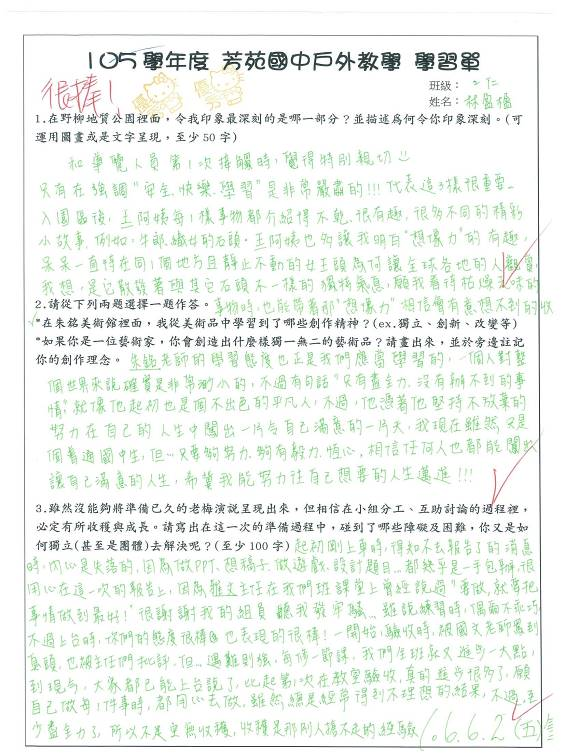 105學年度 芳苑國中戶外教學 學習單
很棒!
班級：二仁
姓名：林
1.在野柳地質公園裡面，令我印象最深刻的是哪一部分？並描述為何令你印象深刻。(可
運用圖畫或是文字呈現，至少50字)
和導覽人員第1次接觸時，覺得特別親切
只有在強調"安全、快樂、學習"是非常嚴肅的!!! 代表這3樣很重要。
入園區後，王阿姨每1樣事物都介紹得不乾、很有趣，很多不同的精彩
小故事，例如：牛郎、織女的石頭。王阿姨也多讓我明白"想像力"的有趣，
呆呆一直待在同1個地方且靜止不動的女王頭為何讓全球各地的人觀賞，
我想，是它散發著與其它石頭不一樣的獨特氣息，願我看待枯燥乏味的
2.請從下列兩題選擇一題作答。 事物時，也能帶著那"想像力"相信會有意想不到的收
*在朱銘美術館裡面，我從美術品中學習到了哪些創作精神？(ex.獨立、創新、改變等)
*如果你是一位藝術家，你會創造出什麼樣獨一無二的藝術品？請畫出來，並於旁邊註記
你的創作理念。 朱銘老師的學習態度也正是我們應當學習的，一個人對整
個世界來說確實是非常渺小的，不過有句話"只有盡全力，沒有辦不到的事
情"就像他起初也是個不出色的平凡人，不過，他憑著他堅持不放棄的
努力在自己的人生中闖出一片令自己滿意的一片天，我現在雖然只是
個普通國中生，但…只要夠努力、夠有毅力、恆心，相信任何人也都能闖出
讓自己滿意的人生，希冀我能努力往自己想要的人生邁進!!!
3.雖然沒能夠將準備已久的老梅演說呈現出來，但相信在小組分工、互助討論的過程裡，
必定有所收穫與成長。請寫出在這一次的準備過程中，碰到了哪些障礙及困難，你又是如
何獨立(甚至是團體)去解決呢？(至少100字) 起初剛上車時，得知不去報告了的消息
時，內心是失落的，因為做PPT、想稿子、做遊戲、設計題目…都幾乎是一手包辦，很
用心在這一次的報告上，因為雅文主任在我們班課堂上曾經說過"要做，就要把
事情做到最好!"很謝謝我的組員 聽我發牢騷… 雖說練習時，偶爾不乖巧
不過上台時，你們的態度很棒 也表現的很棒! 一開始，驗收時，被國文老師罵到
臭頭，也被主任們批評，但…遇難則絃，每修一節課，我們全班就又進步一大點，
到現今，大家都已能上台說了，比起第1次在教室驗收，真的進步很多了，願
自己做每1件事時，都用心去做，雖然總是經常得到不理想的結果，不過，至
少盡全力了，所以不是空無收穫，收穫是那別人搶不走的經驗
106.6.2(五)